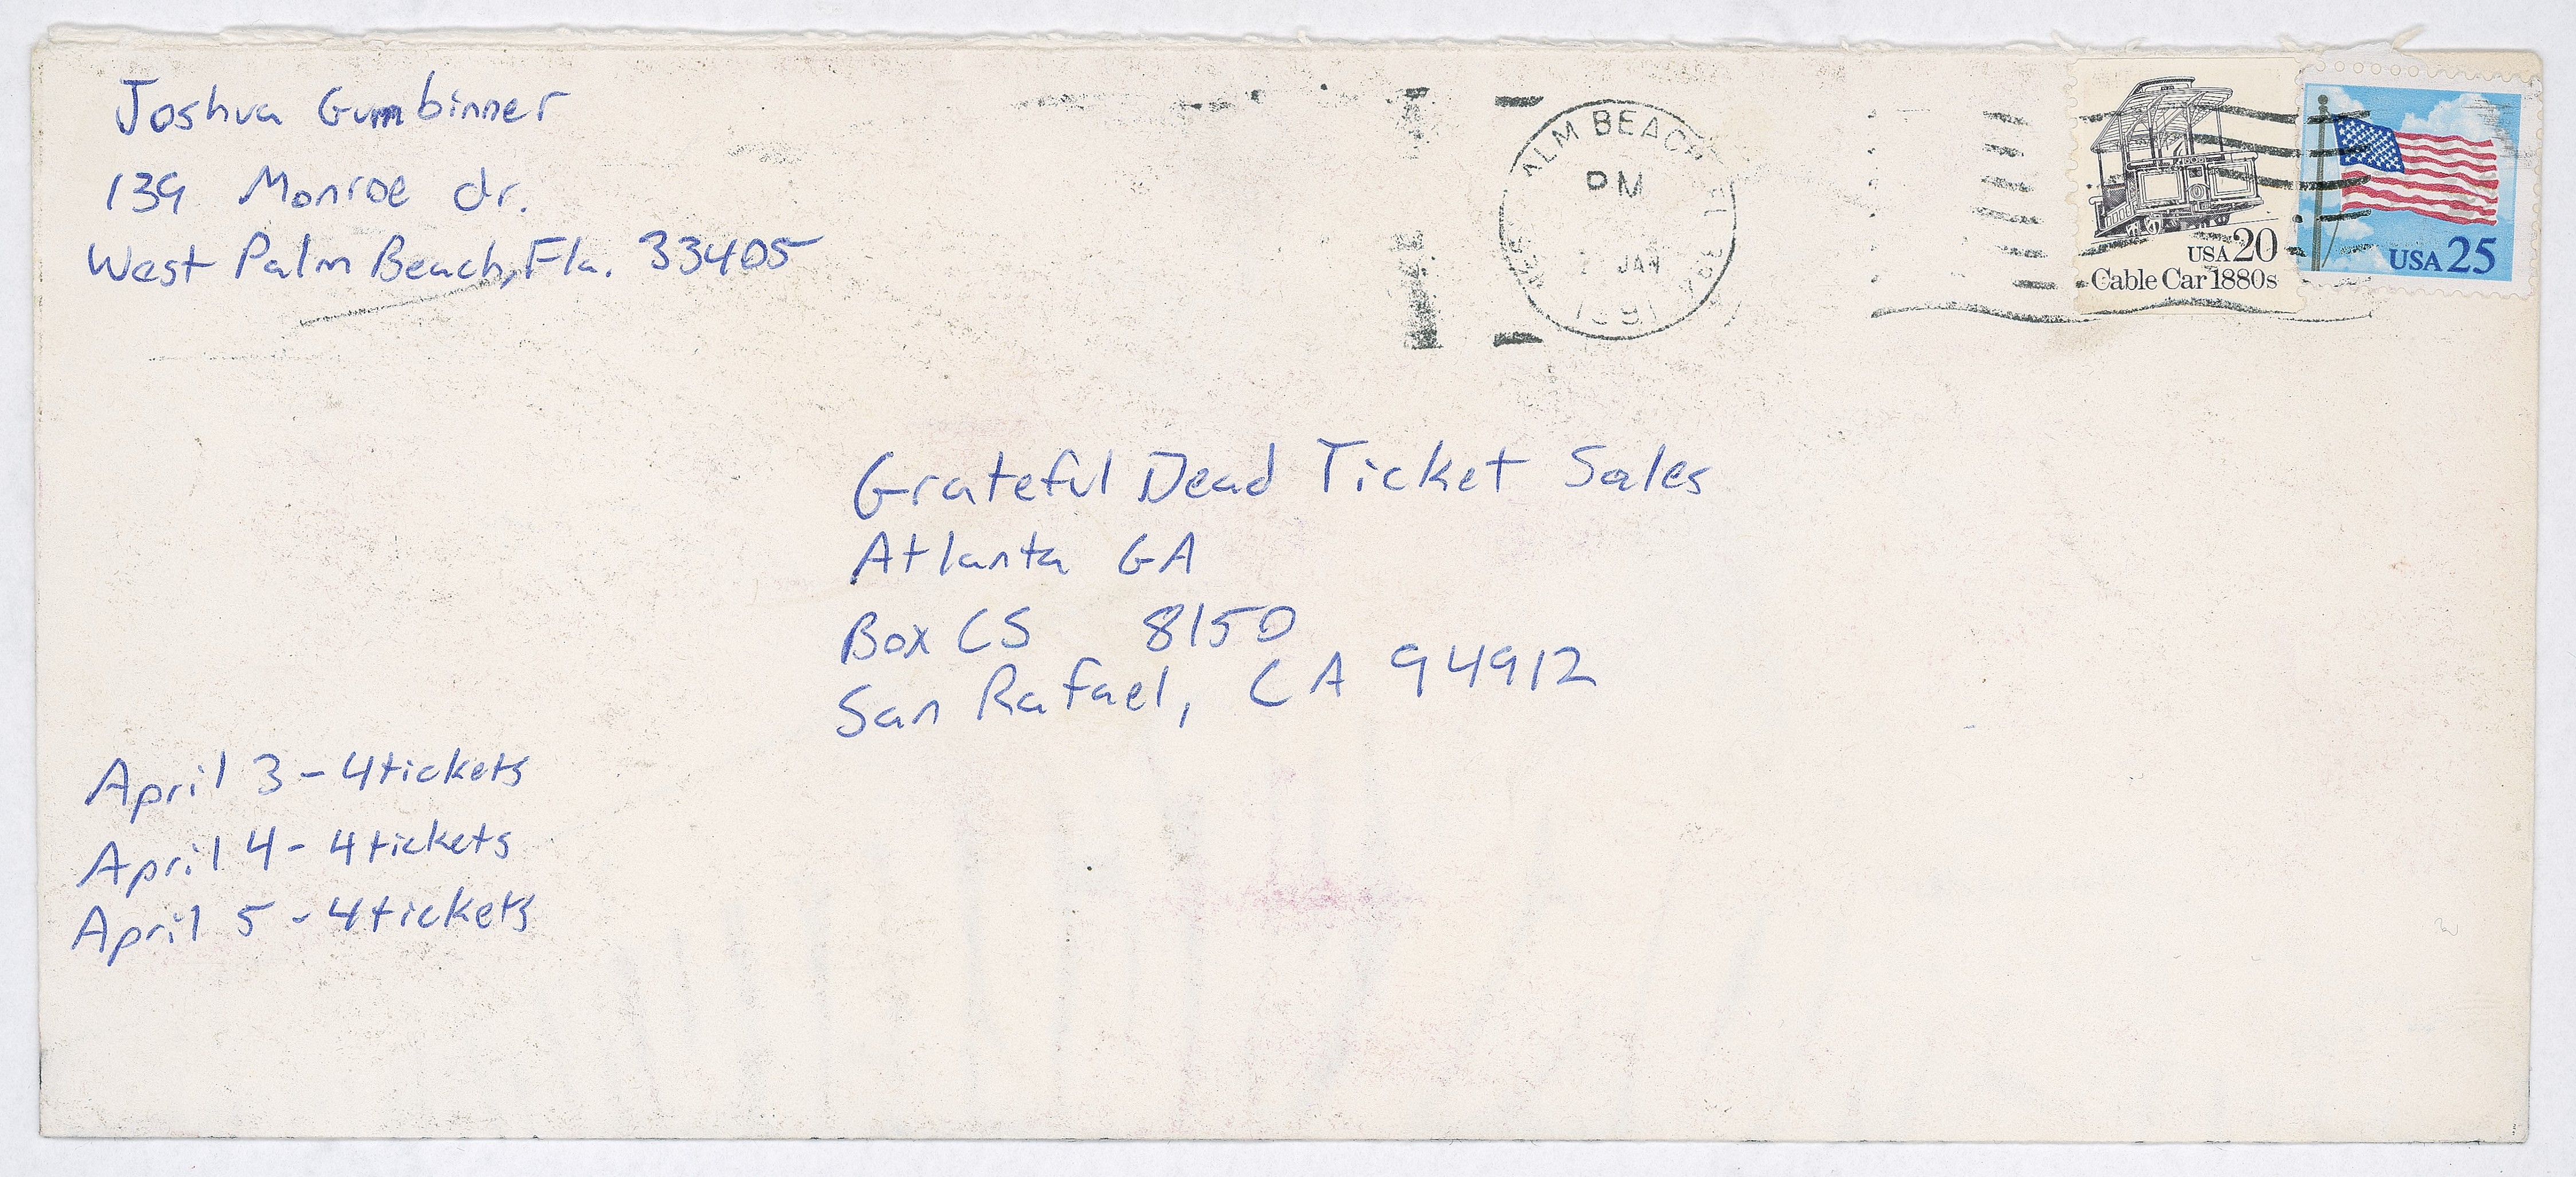 Joshua Gumbinner
139 Monroe dr.
West Palm Beach, Fla. 33405
PM
JAN
1991
USA 20
Cable Car 1880s
USA 25
Grateful Dead Ticket Sales
Atlanta GA
Box CS 8150
San Rafael, CA 94912
April 3 - 4 tickets
April 4 - 4 tickets
April 5 - 4 tickets